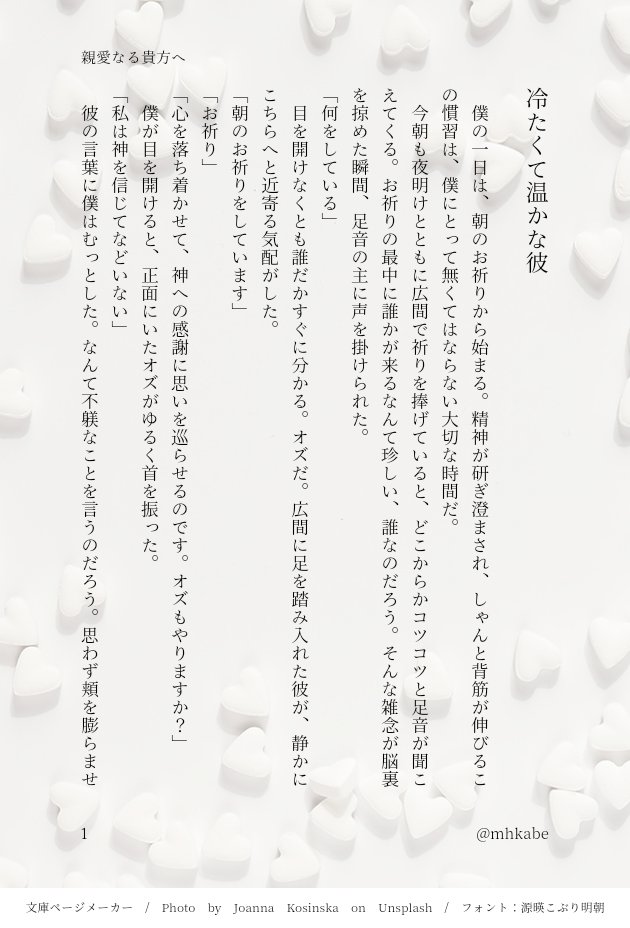 親愛なる貴方へ
冷たくて温かな彼
　僕の一日は、朝のお祈りから始まる。精神が研ぎ澄まされ、しゃんと背筋が伸びるこ
の慣習は、僕にとって無くてはならない大切な時間だ。
　今朝も夜明けとともに広間で祈りを捧げていると、どこからかコツコツと足音が聞こ
えてくる。お祈りの最中に誰かが来るなんて珍しい、誰なのだろう。そんな雑念が脳裏
を掠めた瞬間、足音の主に声を掛けられた。
「何をしている」
　目を開けなくとも誰だかすぐに分かる。オズだ。広間に足を踏み入れた彼が、静かに
こちらへと近寄る気配がした。
「朝のお祈りをしています」
「お祈り」
「心を落ち着かせて、神への感謝に思いを巡らせるのです。オズもやりますか？」
　僕が目を開けると、正面にいたオズがゆるく首を振った。
「私は神を信じてなどいない」
　彼の言葉に僕はむっとした。なんて不躾なことを言うのだろう。思わず頬を膨らませ
1
@mhkabe
文庫ページメーカー　/　Photo　by　Joanna　Kosinska　on　Unsplash　/　フォント：源暎こぶり明朝